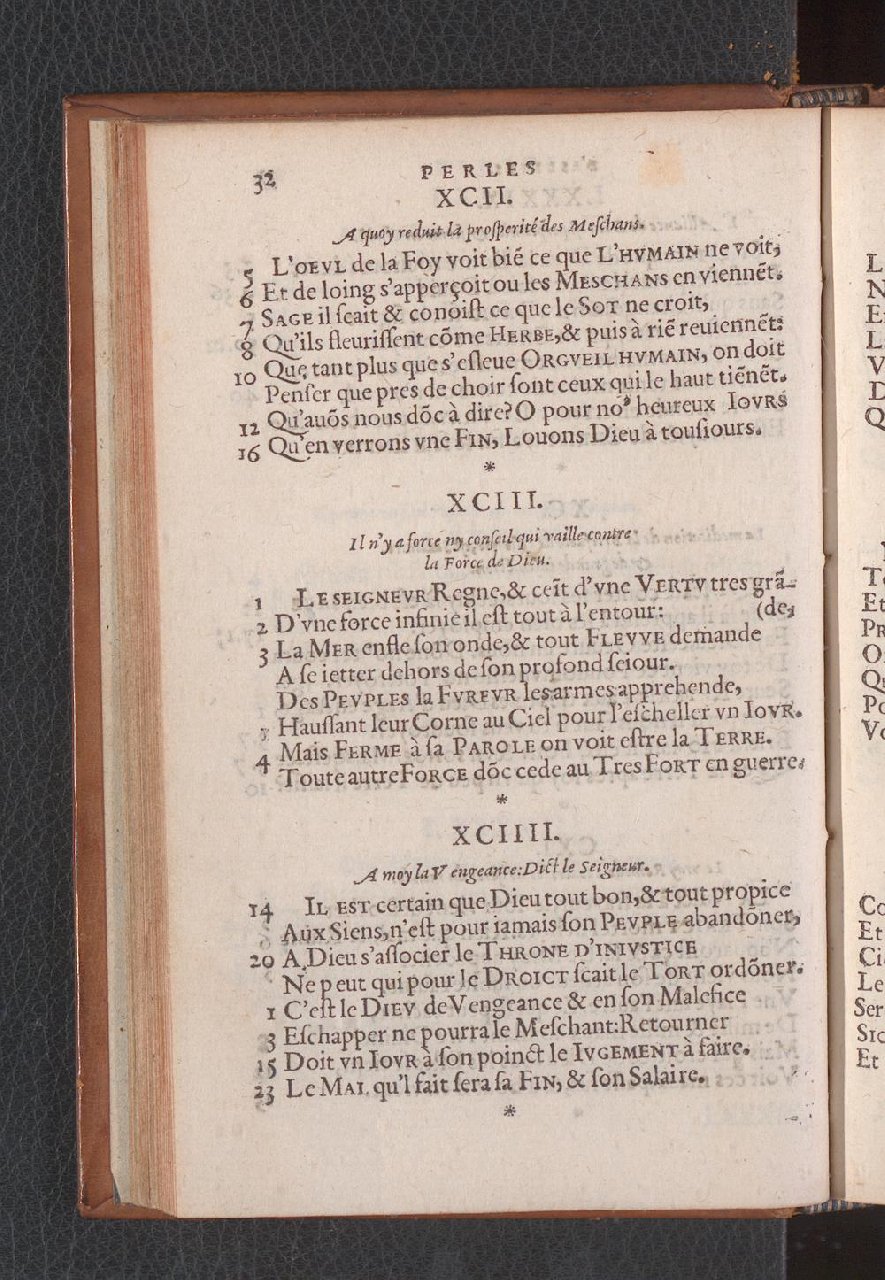 32
PERLES
XCII.
A quoy reduit la prosperité des Meſchans.
5 L'OEVL de la Foy voit biẽ ce que L'HVMAIN ne voit,
6 Et de loing s'apperçoit ou les MESCHANS en viennẽt.
7 SAGE il ſcait & conoiſt ce que le SOT ne croit,
8 Qu'ils fleuriſſent cõme HERBE, & puis à riẽ reuiennẽt:
Que tant plus que s'eſleue ORGVEIL HVMAIN, on doit
10 Penſer que pres de choir ſont ceux qui le haut tiẽnẽt.
12 Qu'auõs nous dõc à dire? O pour noꝰ heureux IOVRS
16 Qu'en verrons vne FIN, Louons Dieu à touſiours.
*
XCIII.
Il n'y a force ny conſeil qui vaille contre
la Force de Dieu.
1 LE SEIGNEVR Regne, & ceĩt d'vne VERTV tres grã-
2 D'vne force infinie il eſt tout à l'entour: (de,
3 La MER enfle ſon onde, & tout FLEVVE demande
A ſe ietter dehors de ſon profond ſeiour.
Des PEVPLES la FVREVR les armes apprehende,
3 Hauſſant leur Corne au Ciel pour l'eſcheller vn IOVR.
4 Mais FERME à ſa PAROLE on voit eſtre la TERRE.
Toute autre FORCE dõc cede au Tres FORT en guerre.
*
XCIIII.
A moy la Vengeance: Dict le Seigneur.
14 IL EST certain que Dieu tout bon, & tout propice
Aux Siens, n'eſt pour iamais ſon PEVPLE abandõner,
20 A Dieu s'aſſocier le THRONE D'INIVSTICE
Ne peut qui pour le DROICT ſcait le TORT ordõner.
1 C'eſt le DIEV de Vengeance & en ſon Malefice
3 Eſchapper ne pourra le Meſchant: Retourner
15 Doit vn IOVR à ſon poinct le IVGEMENT à faire.
23 Le MAL qu'l fait ſera ſa FIN, & ſon Salaire.
*